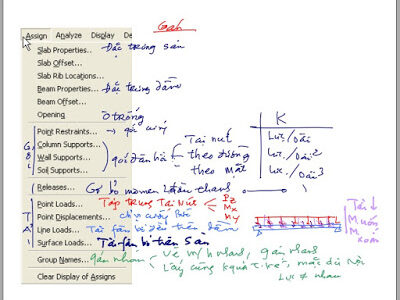 Gán
Assign Analyze Display De
Slab Properties... Đặc trưng sàn
Slab Offset...
Slab Rib Locations...
Beam Properties... Đặc trưng dầm
Beam Offset...
Opening Ô trống
Point Restraints... → gối cứng
Column Supports...
Wall Supports... gối đàn hồi
Soil Supports...
Tại nút
theo đường
theo mặt
K
Lực/Dài
Lực/Dài²
Lực/Dài³
Releases... Gỡ bỏ momen 1 đầu thanh
Point Loads... Tập trung Tại Nút Pz
Mx
My
Point Displacements... chuyển
Line Loads... Tải phân bố đều trên dầm
Surface Loads... Tải phân bố trên Sàn
TẢI
Tải
Muốn
M
xoắn
Group Names... gán nhóm Vẽ m/h nhanh, gán nhanh
Lấy cùng kquả t.kế, mặc dù nội
Lực ≠ nhau
Clear Display of Assigns